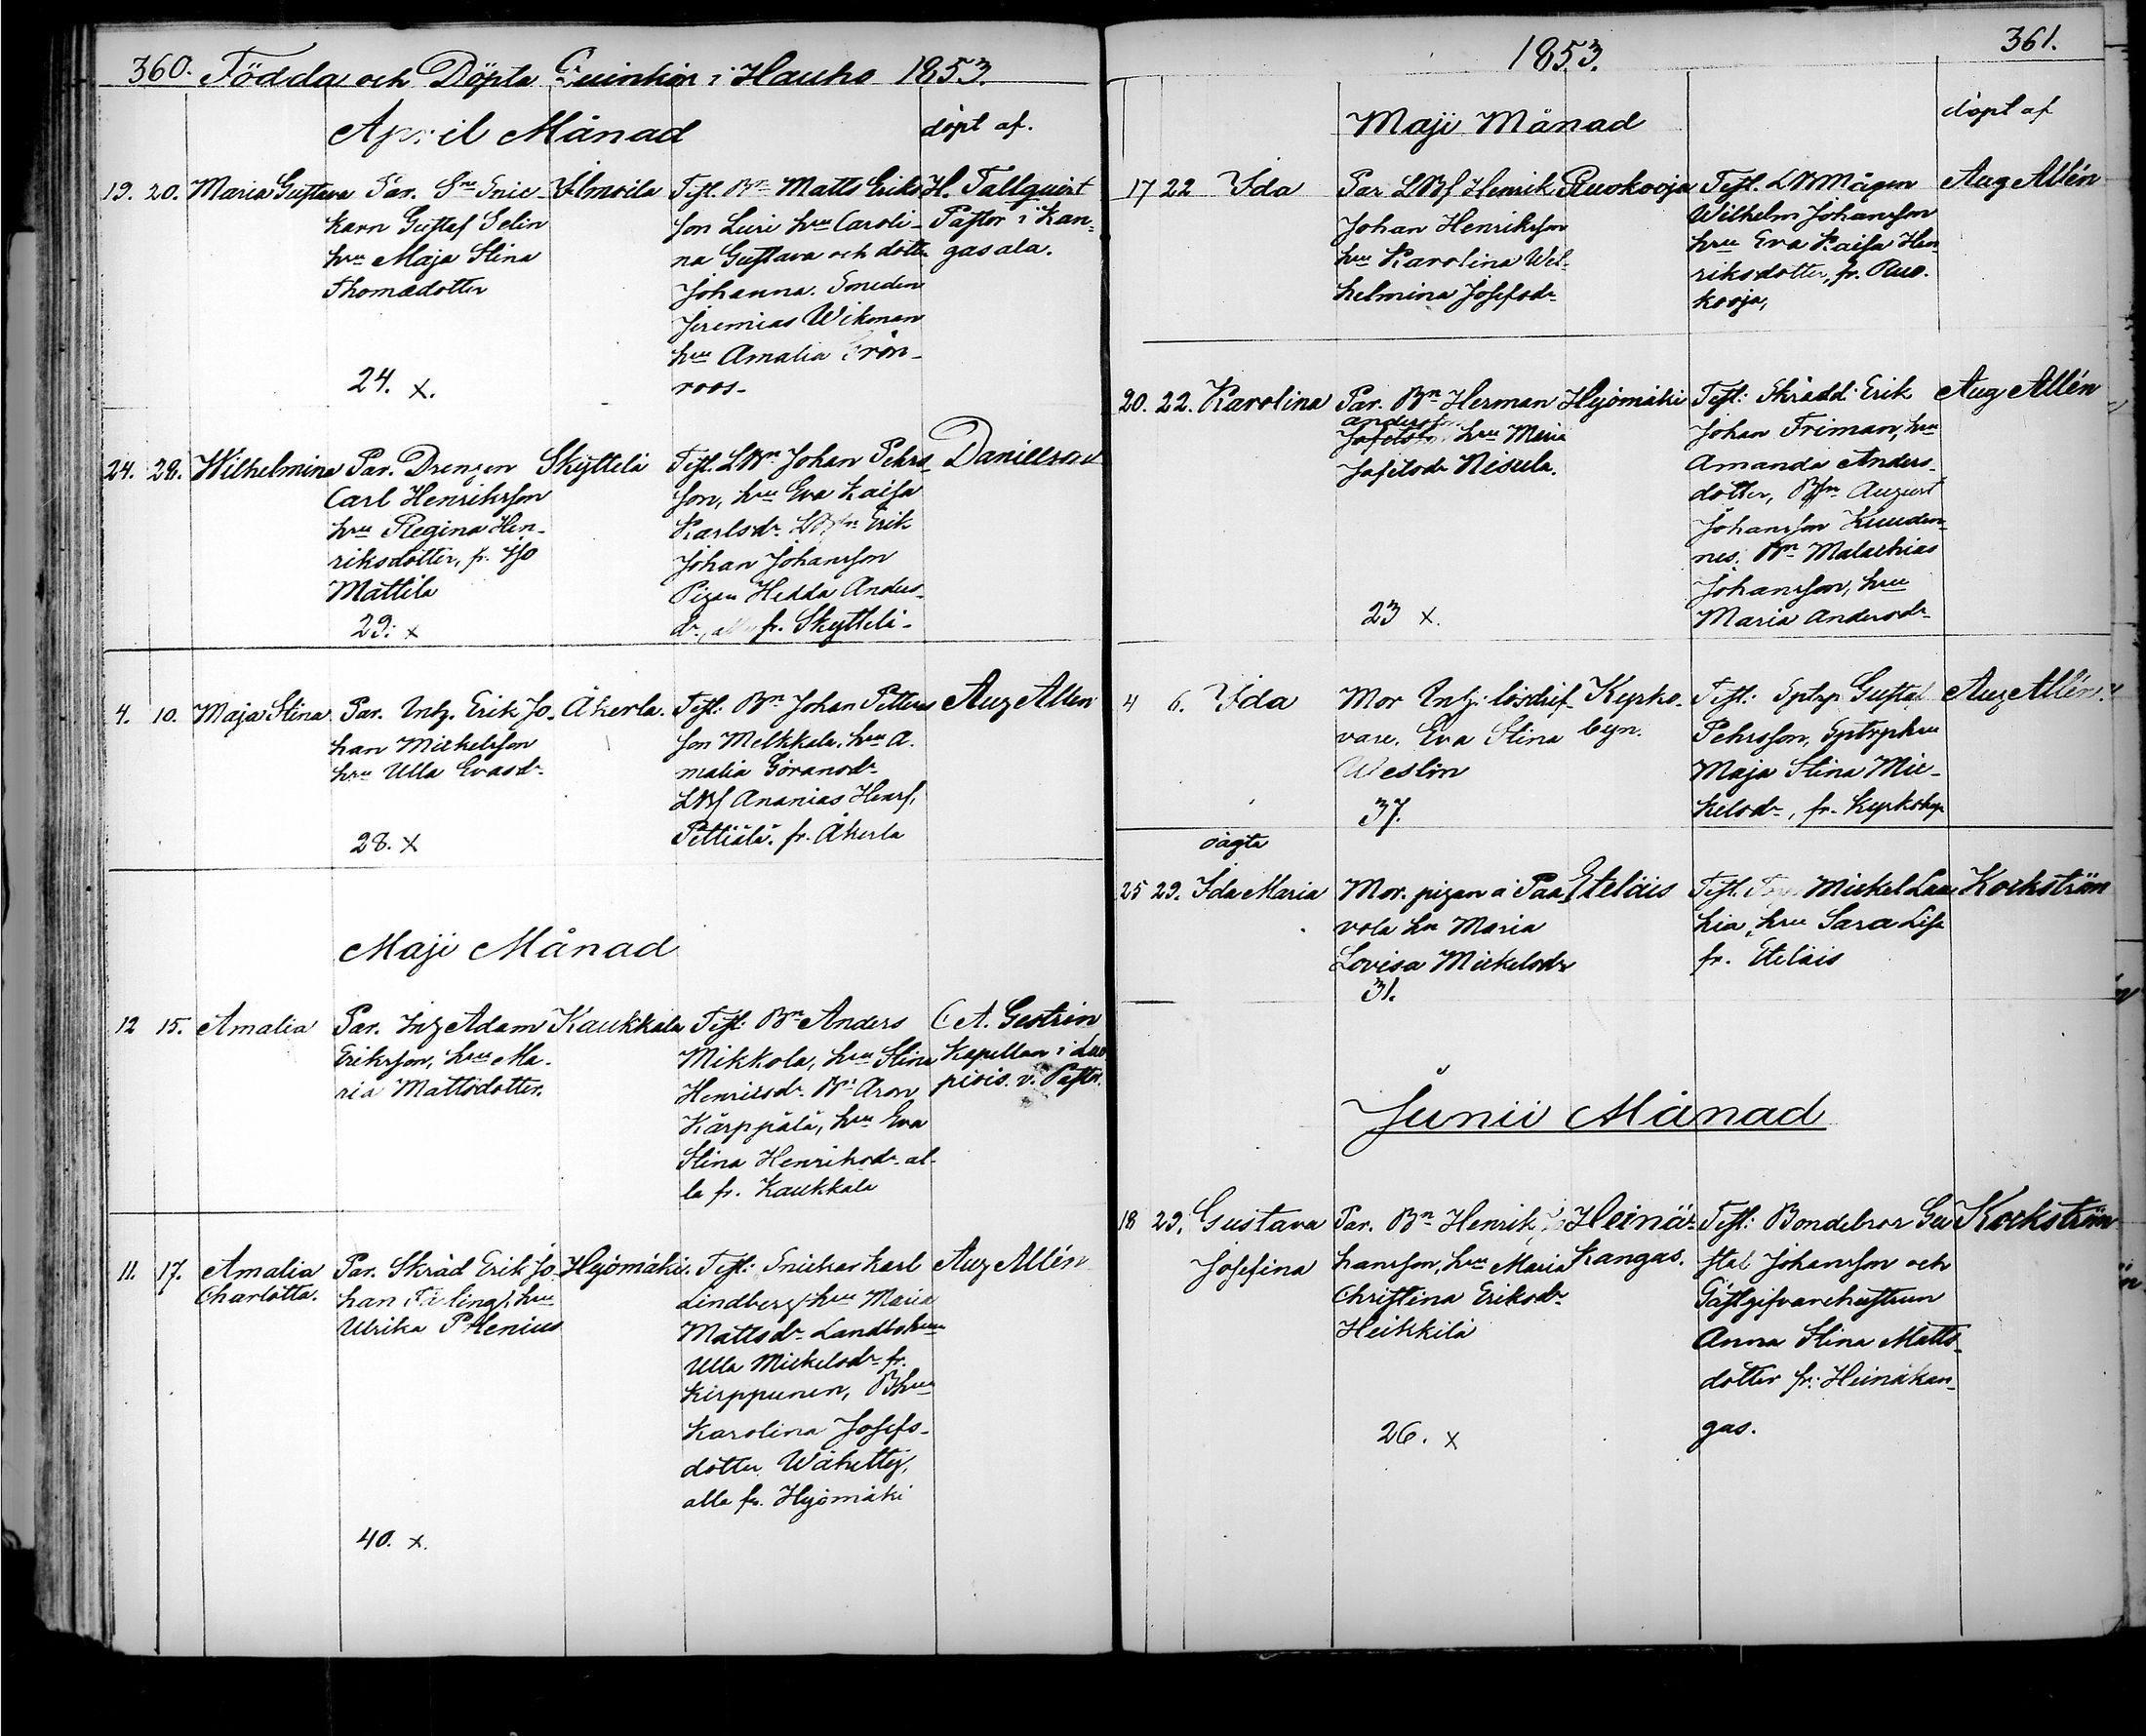 360. Födda och Döpta Qvinkön i Hauho 1853.
April Månad
döpt af.
19. 20. Maria Gustava Par. Snic-
karn Gustaf Selin
hru Maja Stina
Thomædotter
24. x.
Ilmoila
Test. Bn Matts Eriks
son Luri hru Caroli-
na Gustava och dotte
Johanna. Smeden
Jeremias Wikman
hru Amalia Grön-
roos-
H. Tallquist
Pastor i Kan-
gasala.
24. 28. Wilhelmina Par. Drengen
Carl Henriksson
hru Regina Hen-
riksdotter, fr. Iso
Mattila
29. x
Skyttelä
Test. LBn Johan Pehrs-
son, hru Eva Kaisa
Karlsdr. Erik
Johan Johansson
Pigan Hedda Anders-
dr, alla fr. Skyttelä-
Danielson
4. 10. Maja Stina Par. Inh. Erik Jo-
han Mickelsson
hru Ulla Evasdr
28. x
Åkerla.
Test: Bn Johan Petters
son Melkkala, hru A.
malia Göransdr
LBs Ananias Henrs.
Pettiälä. fr. Åkerla
Aug Allén
Maji Månad
12 15. Amalia Par. Inh Adam
Eriksson, hru Ma-
ria Mattsdotter.
Kaukkala
Test: Bn Anders
Mikkola, hru Stina
Henricsdr. Bn Aron
Kärppälä, hru Eva
Stina Henriksdr. al-
la fr. Kaukkala
C A. Gestrin
Kapellan i Luo
piois. v. Pastor.
11. 17. Amalia
Charlotta.
Par. Skräd Erik Jo-
han Färling, hru
Ulrika Plenius
40. x.
Hyömäki.
Test: Snickar Karl
Lindberg, hru Maria
Mattsdr Landbohru
Ulla Mickelsdr fr.
Kirppunen, Bhru
Karolina Josefs-
dotter Wähätty,
alla fr. Hyömäki
Aug Allén
1853.
361.
Maji Månad
döpt af
17 22 Ida
Par LBs Henrik
Johan Henriksson
hru Karolina Wil-
helmina Josefsdr
Ruokooja
Test. LBMågen
Wilhelm Johansson
hru Eva Kaisa Hen
riksdotter, fr. Ruo.
kooja,
Aug Allén
20. 22. Karolina
Par. Bn Herman
Andersson
hru Maria
Josefsdr Nisula.
23 x.
Hyömäki
Test: Skrädd. Erik
Johan Friman, hru
Amanda Anders-
dotter, Bsn August
Johansson Knuden-
nes. Bn Malachias
Johansson, hru
Maria Andersdr
Aug Allén
4 6. Ida
Mor Inh: lösdrif-
vare. Eva Stina
Weslin
37.
Kyrko-
byn.
Test: Sptrp Gustaf
Pehrsson, Sptrphru
Maja Stina Mic-
kelsdr, fr. Kyrkobyn
Aug Allén
oägta
25 29. Ida Maria
Mor. pigan å Paa
vola hn Maria
Lovisa Mickelsdr
31.
Eteläis
Test. Mickel Lau
kia, hru Sara Lisa
fr. Eteläis
Kockström
Junii Månad
18 29. Gustava
Josefina
Par. Bn Henrik Jo
hansson, hru Maria
Christina Eriksdr
Heikkilä
26. x
Heinä-
kangas.
Test: Bondebror Gu
staf Johansson och
Gästgifvarehustrun
Anna Stina Matts-
dotter fr: Heinäkan-
gas.
Kockström